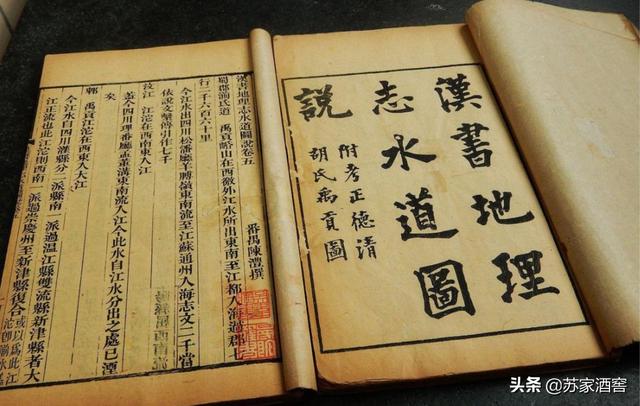 漢書地理
志水道圖
說
附考正德清
胡氏禹貢圖
漢書地理志水道圖說卷五
番禺陳澧撰
蜀郡湔氐道 禹貢㟭山在西徼外江水所出東南至江都入海過郡七
行二千六百六十里
今江水出四川松潘廳羊膊嶺東南流至江蘇通州入海志文二千當
依說文繫傳引作七千
汶江 江沱在西南東入江
蓋今四川理番廳孟董溝東南流入江今此水自江水分出之處已湮
矣
郫 禹貢江沱在西東入大江
今江水自四川灌縣分二派縣南一派過溫江縣雙流縣新津縣者大
江正流也此江沱則西南一派過崇慶州至新津縣復合
或以此江
头条 @苏家酒窖